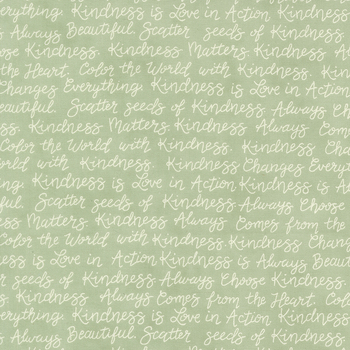 erything. Kindness is Love in Action Kindness
s Always Beautiful. Scatter seeds of Kindness.
ose Kindness. Kindness Matters. Kindness Al
the Heart. Color the World with Kindness.
Changes Everything. Kindness is Love in Action
eautiful. Scatter seeds of Kindness. Always Cho
ss. Kindness Matters. Kindness Always Com
Color the World with Kindness. Kindness Chan
orld with Kindness. Kindness Changes Everyt
ng. Kindness is Love in Action Kindness is Al
ful. Scatter seeds of Kindness. Always Choose
ss Matters. Kindness Always Comes from the
Color the World with Kindness. Kindness Chang
ness is Love in Action Kindness is Always
r seeds of Kindness. Always Choose Kindness.
s. Kindness Always Comes from the Heart. Colo
erything. Kindness is Love in Action Kindness
s Always Beautiful. Scatter seeds of Kindness